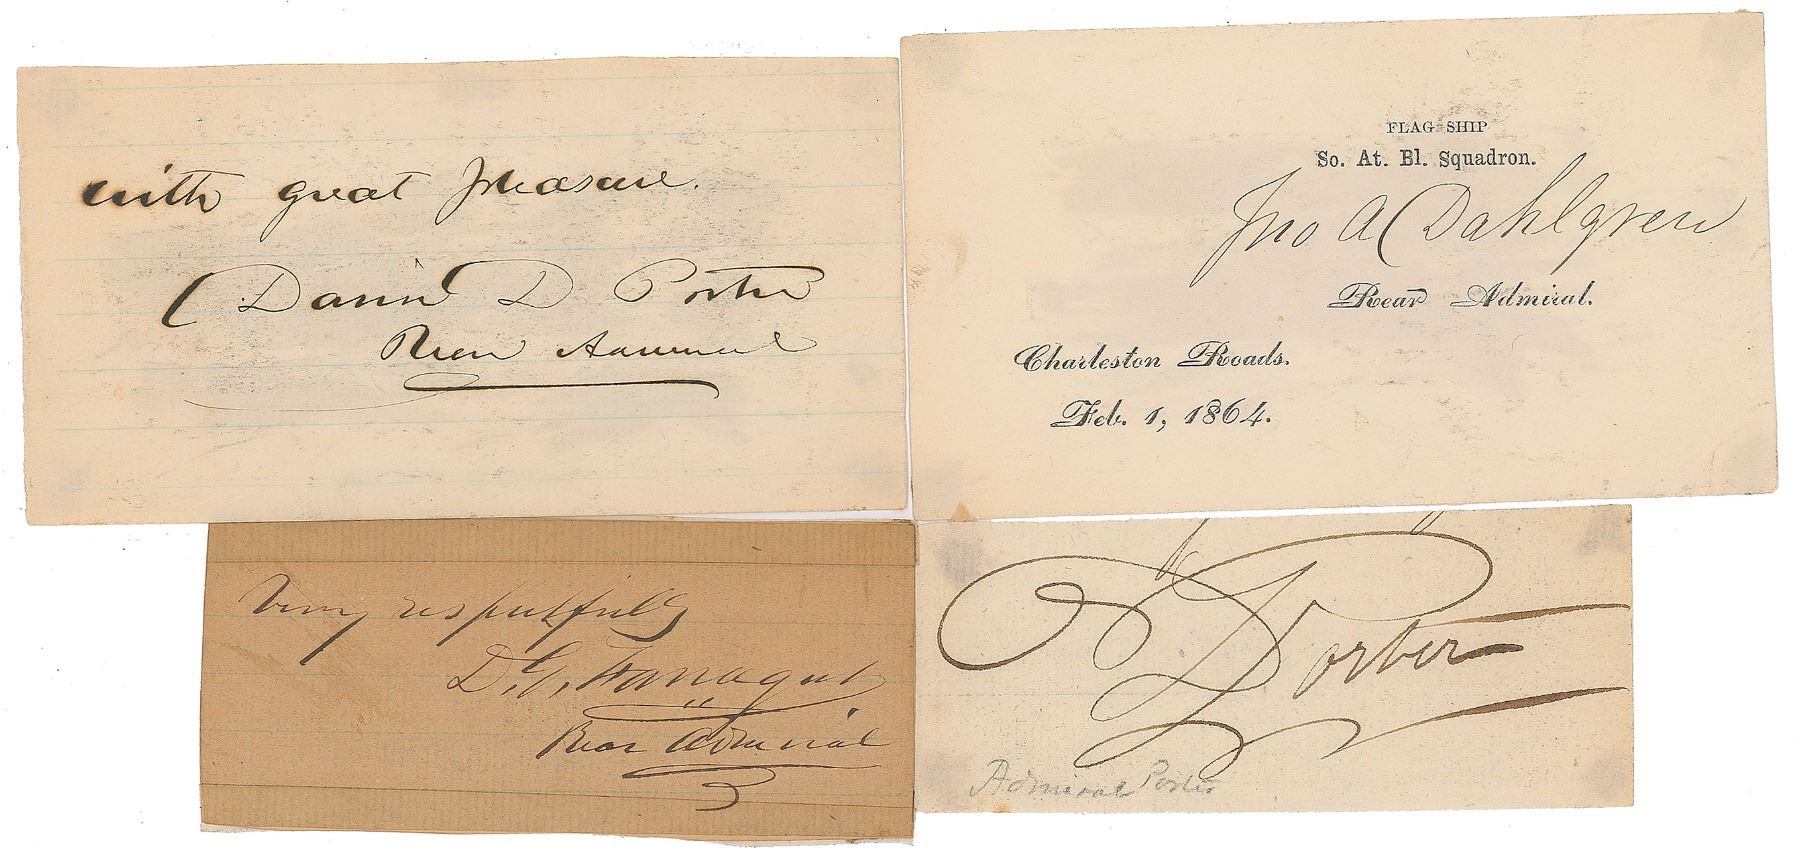 with great pleasure.
David D Porter
Rear Admiral
FLAG SHIP
So. At. Bl. Squadron.
Jno A Dahlgren
Rear Admiral.
Charleston Roads.
Feb. 1, 1864.
Very respectfully
D. G. Farragut
Rear Admiral
D Porter
Admiral Porter